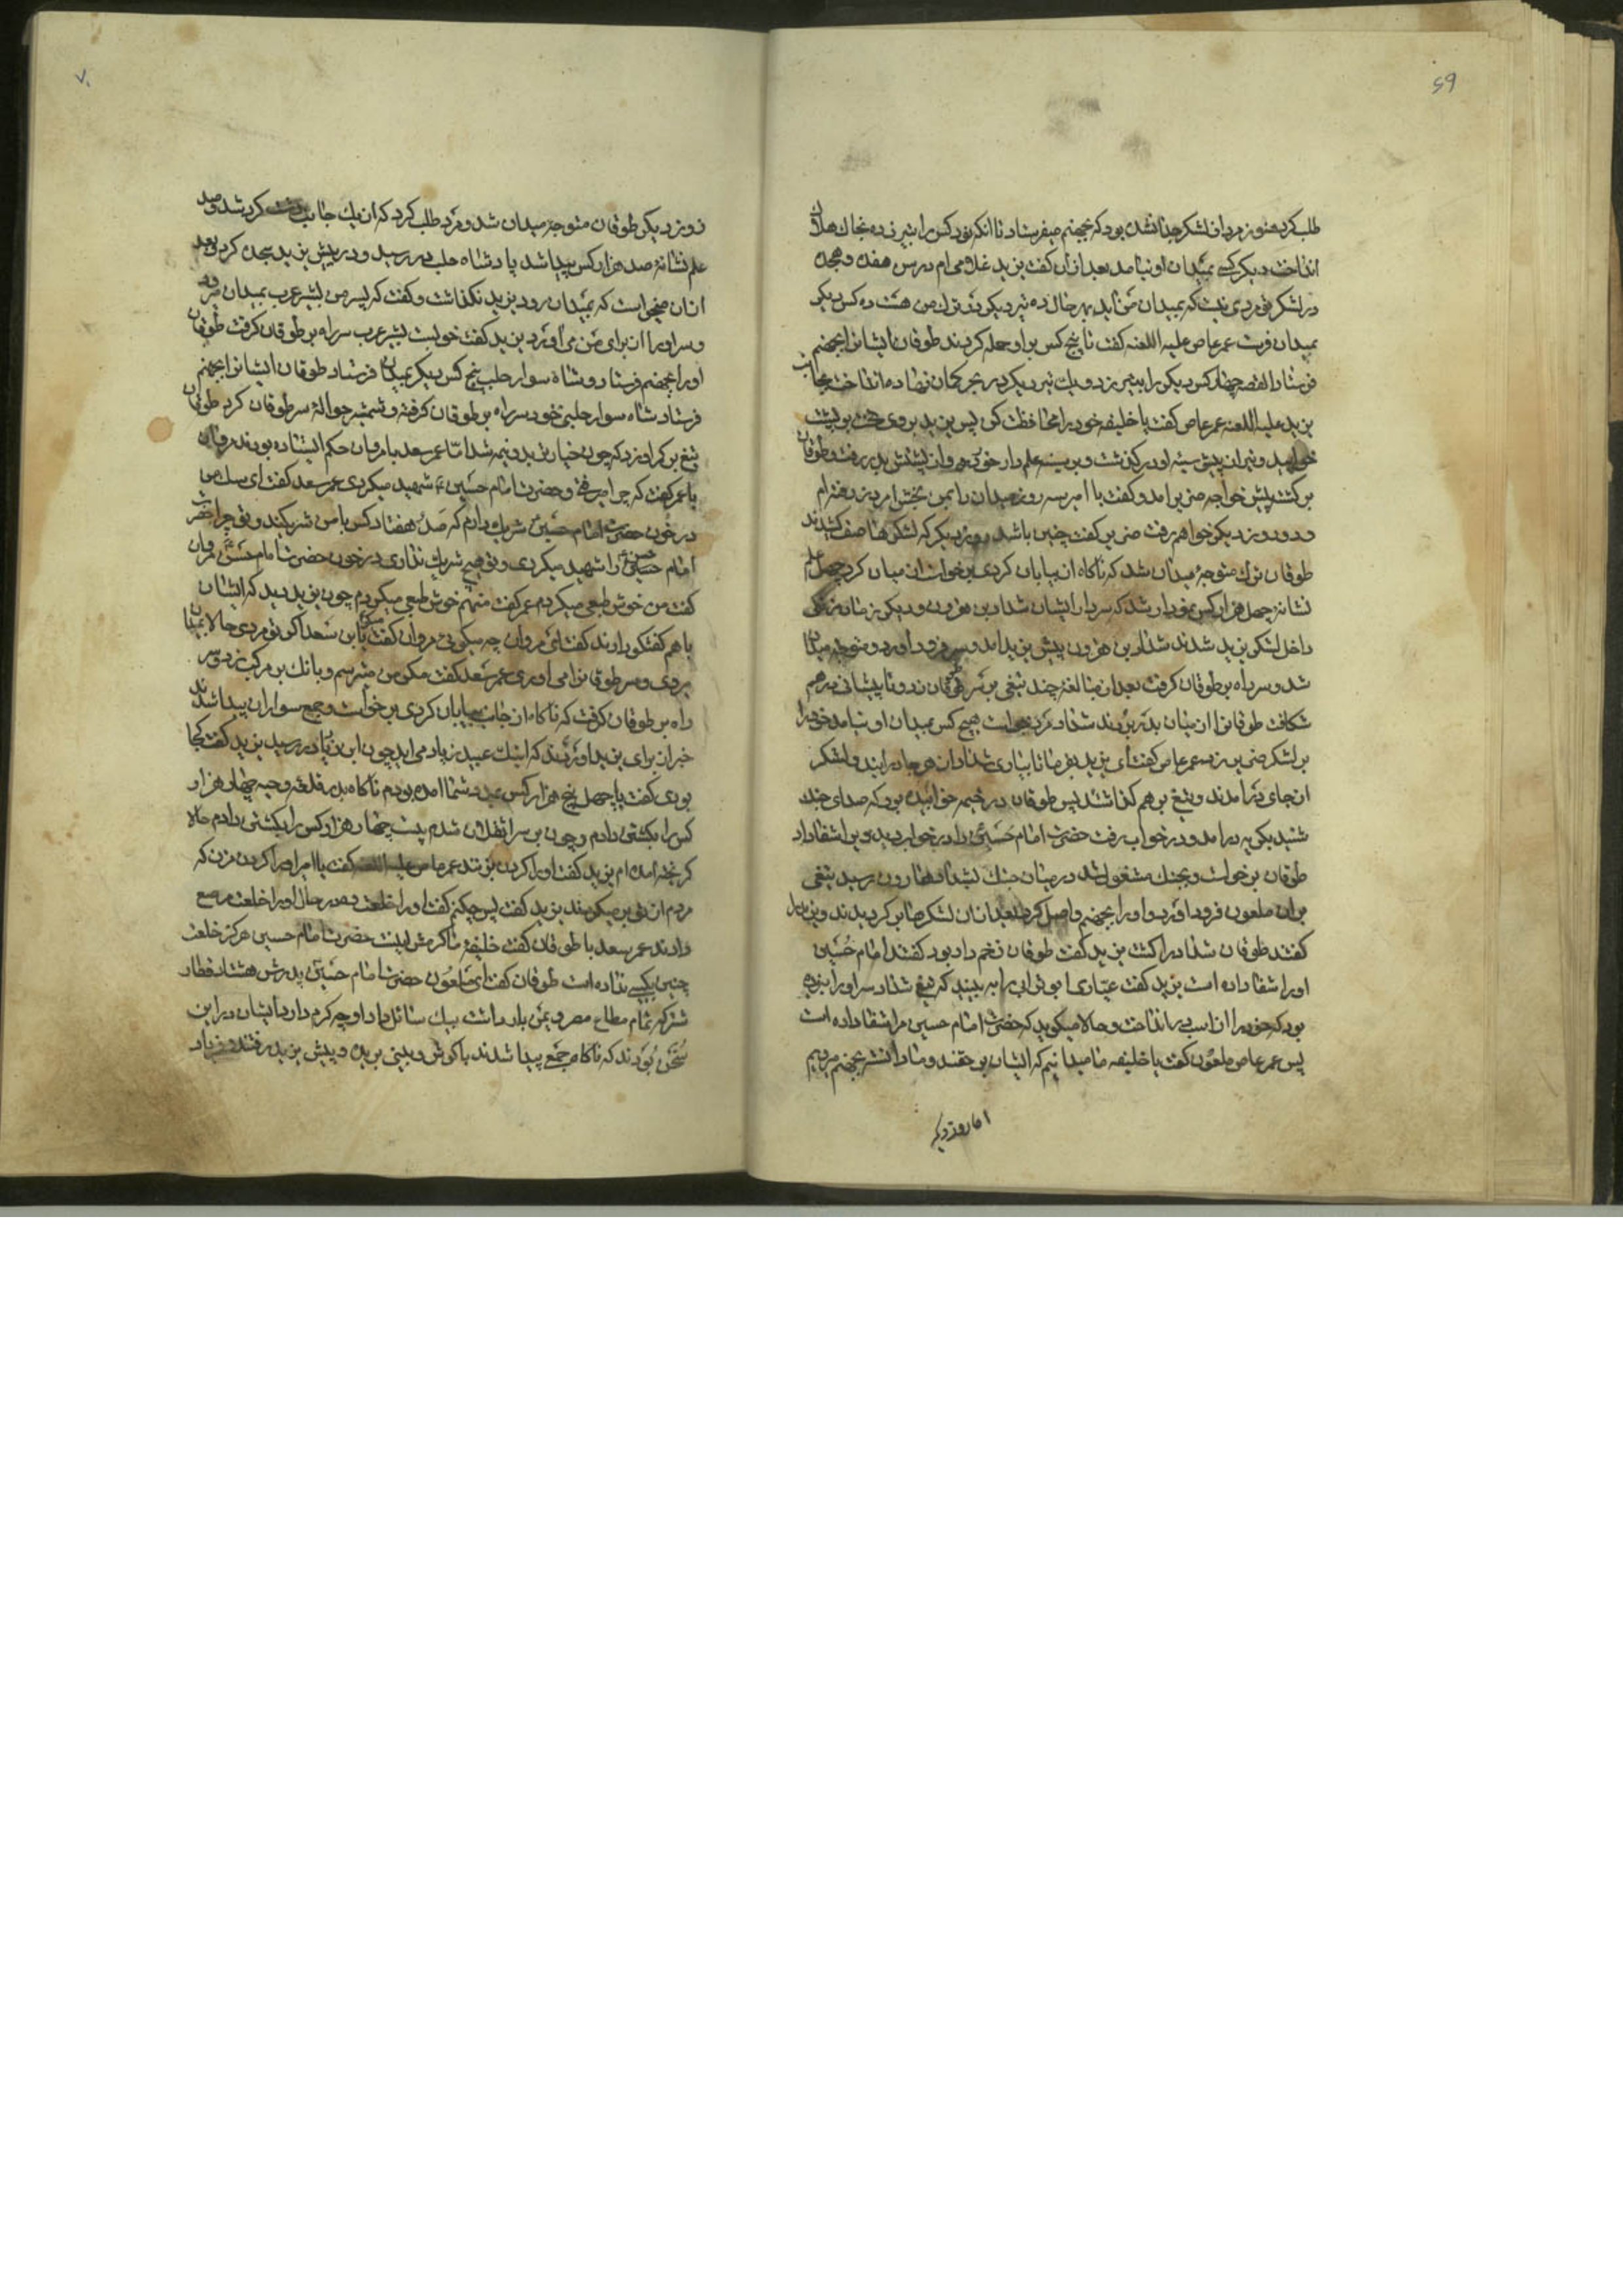 ۶۹
طلب کرد هنوز مرد از لشکر جدا نشده بود که بجهنم میفرستاد تا انکه نود کس را بتیر زده بخاک هلاک
انداخت دیگر کسی بمیدان او نیامد بعد ازان گفت یزید غلامی ام در سن هفده و هجده
در لشکر تو مردی نیست که بمیدان من اید بهر حال ده تیر دیگر زد ترک من هشت ده کس دیگر
بمیدان فرست عمر عاص علیه اللعنه گفت تا پنج کس بر او حمله کردند طوفان ایشانرا بجهنم
فرستاد القصه چهل کس دیگر را بتیر زد و یک تیر دیگر در بحر کمان نهاده انداخت بجانب
یزید علیه اللعنه عمر عاص گفت یا خلیفه خود را محافظت کن پس یزید بروی تخت بر پشت
خوابید و تیر از پیش سینه او در گذشت و بر سینه علم دار خورد و از پشتش بدر رفت و طوفان
بر کشت پیش خواجه ضریر امد و گفت یا امیر سه روز میدان را بمن بخش امروز رفته ام
و دو روز دیگر خواهم رفت ضریر گفت چنین باشد روز دیگر که لشکرها صف کشیدند
طوفان ترک متوجهٔ میدان شد که ناکاه از بیابان کردی برخواست از میان کرد چهل علم
نشانهٔ چهل هزار کس نمودار شد که سردار ایشان شداد بن هرون و دیگر
داخل لشکر یزید شدند شداد بن هرون پیش یزید امد و سر فرود اورد و متوجه میدان
شد و سر راه بر طوفان کرفت بعد از مبالغه چند تیغی بر سر طوفان زد و تا پیشانی درهم
شکافت طوفانرا از میان بدر بردند شداد مرد میخواست هیچ کس بمیدان او نیامد خود را
بر لشکر ضریر زد عمر عاص گفت ای یزید بفرما تا بیاری شداد از هر جا در ایند و لشکر
از جای در امدند و تیغ برهم کذاشتند پس طوفان در خیمه خوابیده بود که صدای جنک
شنید بکریه درامد و در خواب رفت حضرت امام حسین را در خواب دید و بر او شفا داد
طوفان برخواست و بجنک مشغول شد در میان جنک بشداد هارون رسید تیغی
بران ملعون فرود اورد و اورا بجهنم واصل کرد بعد ازان لشکرها بر کردیدند و یزید را
گفتند طوفان شداد را کشت یزید گفت طوفان زخم دار بود گفتند امام حسین
اورا شفا داده است یزید گفت عیاری ابوترابی را به بینید که تیغ شداد سر اورا نبریده
بود که خود را از اسب در انداخت و حالا میکوید که حضرت امام حسین مرا شفا داده است
پس عمر عاص ملعون گفت یا خلیفه ما میدانیم که ایشان بر حقند و ما دانسته بجهنم میرویم
اما روز دیگر
۷۰
روز دیگر طوفان متوجهٔ میدان شد و مرد طلب کرد که از یک جانب دشت کرد شد و صد
علم نشانهٔ صد هزار کس پیدا شد پادشاه حلب در رسید و در پیش یزید سجده کرد و بعد
ازان میخواست که بمیدان رود یزید نکذاشت و گفت که پسر من بشیر عرب بمیدان میرود
و سر اورا از برای من می اورد یزید گفت خوبست بشیر عرب سر راه بر طوفان کرفت طوفان
اورا بجهنم فرستاد و شاه سوار حلب پنج کس دیگر بمیدان فرستاد طوفان ایشانرا بجهنم
فرستاد شاه سوار حلبی خود سر راه بر طوفان کرفته و شمشیر حوالهٔ سر طوفان کرد طوفان
تیغ بر کمر او زد که چون خیار تر بدو نیمه شد امّا عمر سعد با مروان حکم ایستاده بودند مروان
با عمر گفت که چرا میرفتی و حضرت امام حسین ع شهید میکردی عمر سعد گفت ای سک من
در خون حضرت امام حسین شریک دارم که صد هفتاد کس با من شریکند و تو چرا حضرت
امام حسن را شهید میکردی و تو هیچ شریک نداری در خون حضرت امام حسن مروان
گفت من خوش طبعی میکردم عمر گفت منهم خوش طبعی میکردم چون یزید دید که ایشان
باهم گفتکو دارند گفت ای مروان چه میکوئی مروان گفت با ابن سعد اکر تو مردی حالا بمیدان
میروی و سر طوفانرا می اوری عمر سعد گفت مکر من میترسم و بانک بر مرکب زد و سر
راه بر طوفان کرفت که ناکاه از جانب بیابان کردی برخواست و جمع سواران پیدا شدند
خبر از برای یزید اوردند که اینک عبید زیاد می اید چون ابن زیاد در رسید یزید گفت کجا
بودی گفت با چهل پنج هزار کس بمدد شما امده بودم ناکاه بدر قلعه چهار هزار
کس را بکشتن دادم و چون بر سر شدم بیست چهار هزار کس را بکشتن دادم حالا
کریخته امده ام یزید گفت اورا کردن بزنید عمر عاص علیه اللعنه گفت یا امیر اورا کردن مزن که
مردم از تو بر میکردند یزید گفت پس چکنم گفت اورا خلعت ده در حال اورا خلعت مرصع
دادند عمر سعد با طوفان گفت خلیفهٔ ما کرمش اینست حضرت امام حسین هرکز خلعت
چنین بکسی نداده است طوفان گفت ای ملعون حضرت امام حسین پدرش هشتاد قطار
شتر که تمام متاع مصر و یمن بار داشت بیک سائل داد او چه کرم دارد ایشان در این
سخن بودند که ناکاه جمع پیدا شدند با کوش و بینی بریده و پیش یزید رفتند و فریاد